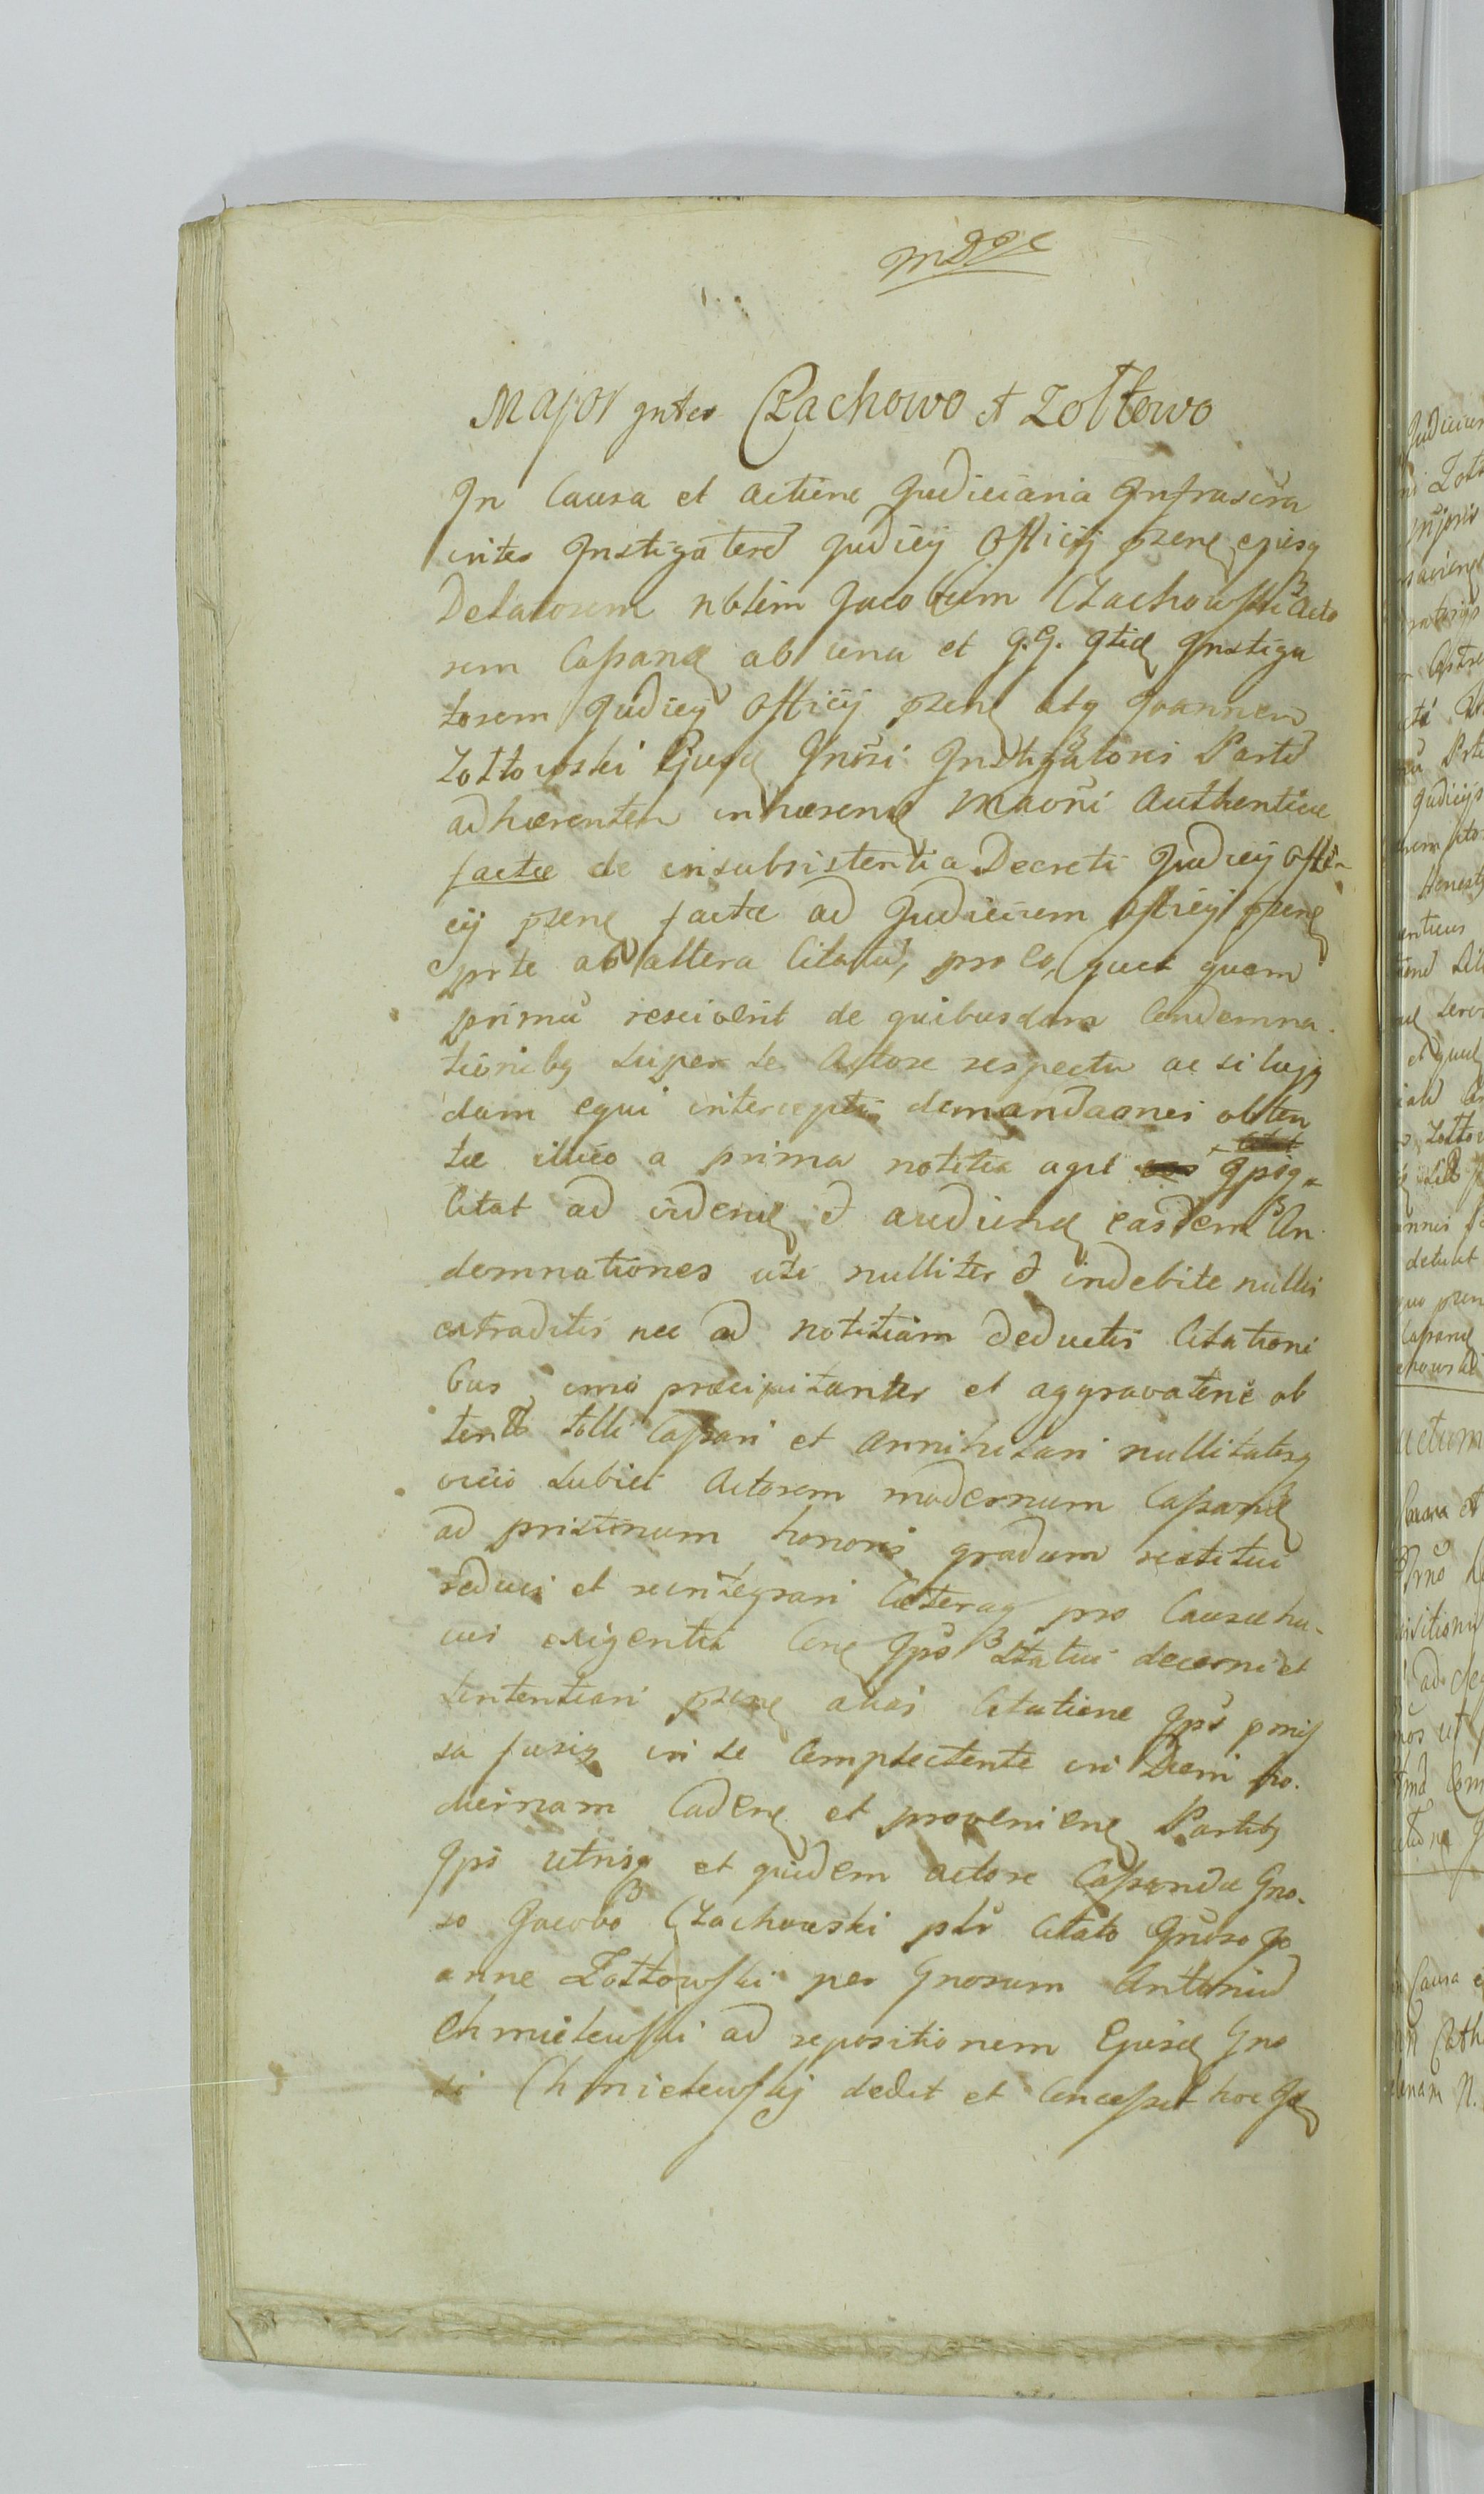 Major inter Czachowo et Zołtowo
In Causa et actione Judiciaria Infrascra
inter Instigatore Judicij Officij psene ejusq
Delatorem nblem Jacobum Czachowski Acto
rem Cassand ab una et G. G. Instiga
torem Judicij Officij psene atq Joannem
Zołtowski Ejusd Instigatoris Parte
adhaerentem inhaerend Maoni Authenticae
factae de insubsistentia Decreti Judicij Offi
cij psene factae ad Judicium Officij psene
prte ab altera Citatu, pro eo, quia quam
primu resciverit de quibusdam Condemna
tionibq super se Actore respectu ac si cujq
dam equi intercepti demandaonei obten
tae illico a prima notitia agit Ipsoq
Citat ad vidend et audiend easdem Con
demnationes uti nulliter et indebite nullis
extraditis nec ad notitiam deductis Citationi
bus, imo praecipitanter et aggravatorie ob
tentas tolli Cassari et annihilari nullitatisq
vicio subici Actorem modernum Cassand
ad pristinum honoris gradum restitui
reduci et reintegrari Caeteraq pro Causae hu
ius exigentia Ipso Statui decerni et
sententiari psene alias Citatione Ipso
sa fusiq in se Complectente in Diem ho
diernam Caden et provenien Partibq
Ipsis utrisq et quidem actore Cassanda Gno
so Jacobo Czachowski Citato Gnoso Jo
anne Zołtowski per Gnosum Antoniu
Chmielewski ad repositionem Ejusd Gno
si Chmielewskij dedit et Concessit hoc Jd